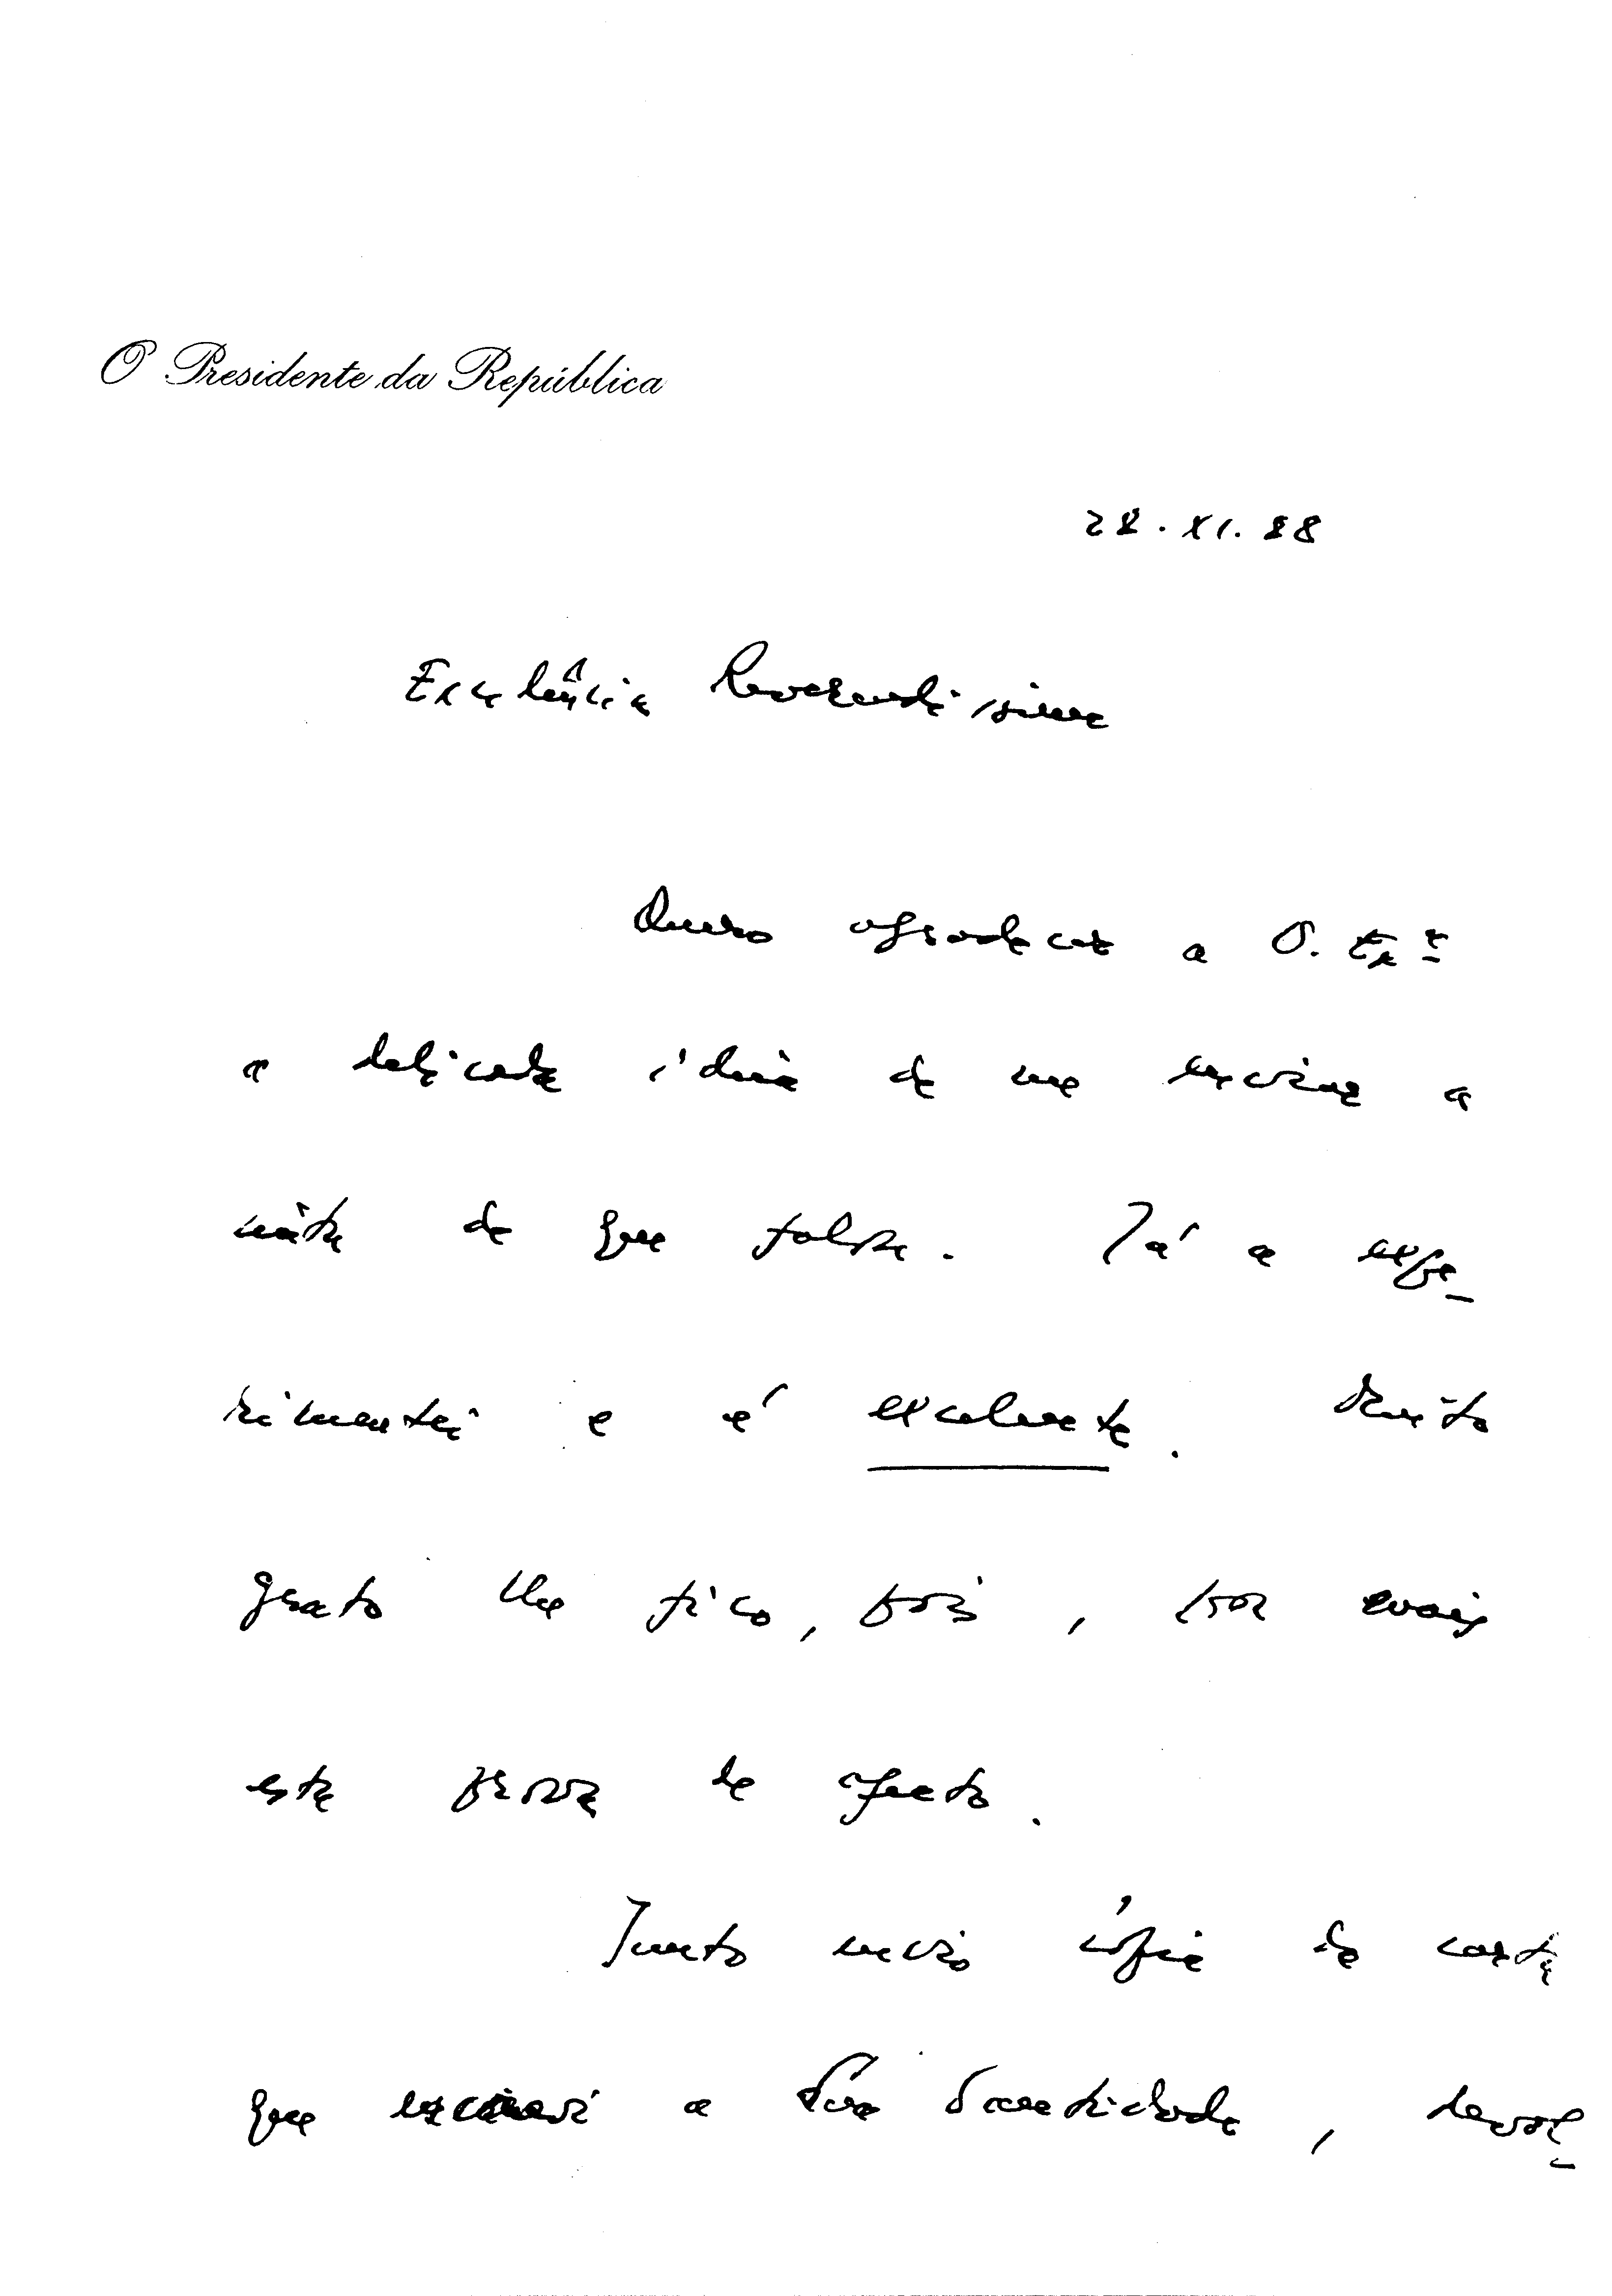 O Presidente da República
28.XI.88
Excelência Reverendíssima
Quero agradecer a V. Exª
a delicada ideia de me enviar a
de que falara. Já a expe-
rimentei e é excelente. Muito
grato lhe fico, pois, por mais
esta prova de afecto.
Junto envio cópia da carta
que escrevi a Sua Santidade, devol-